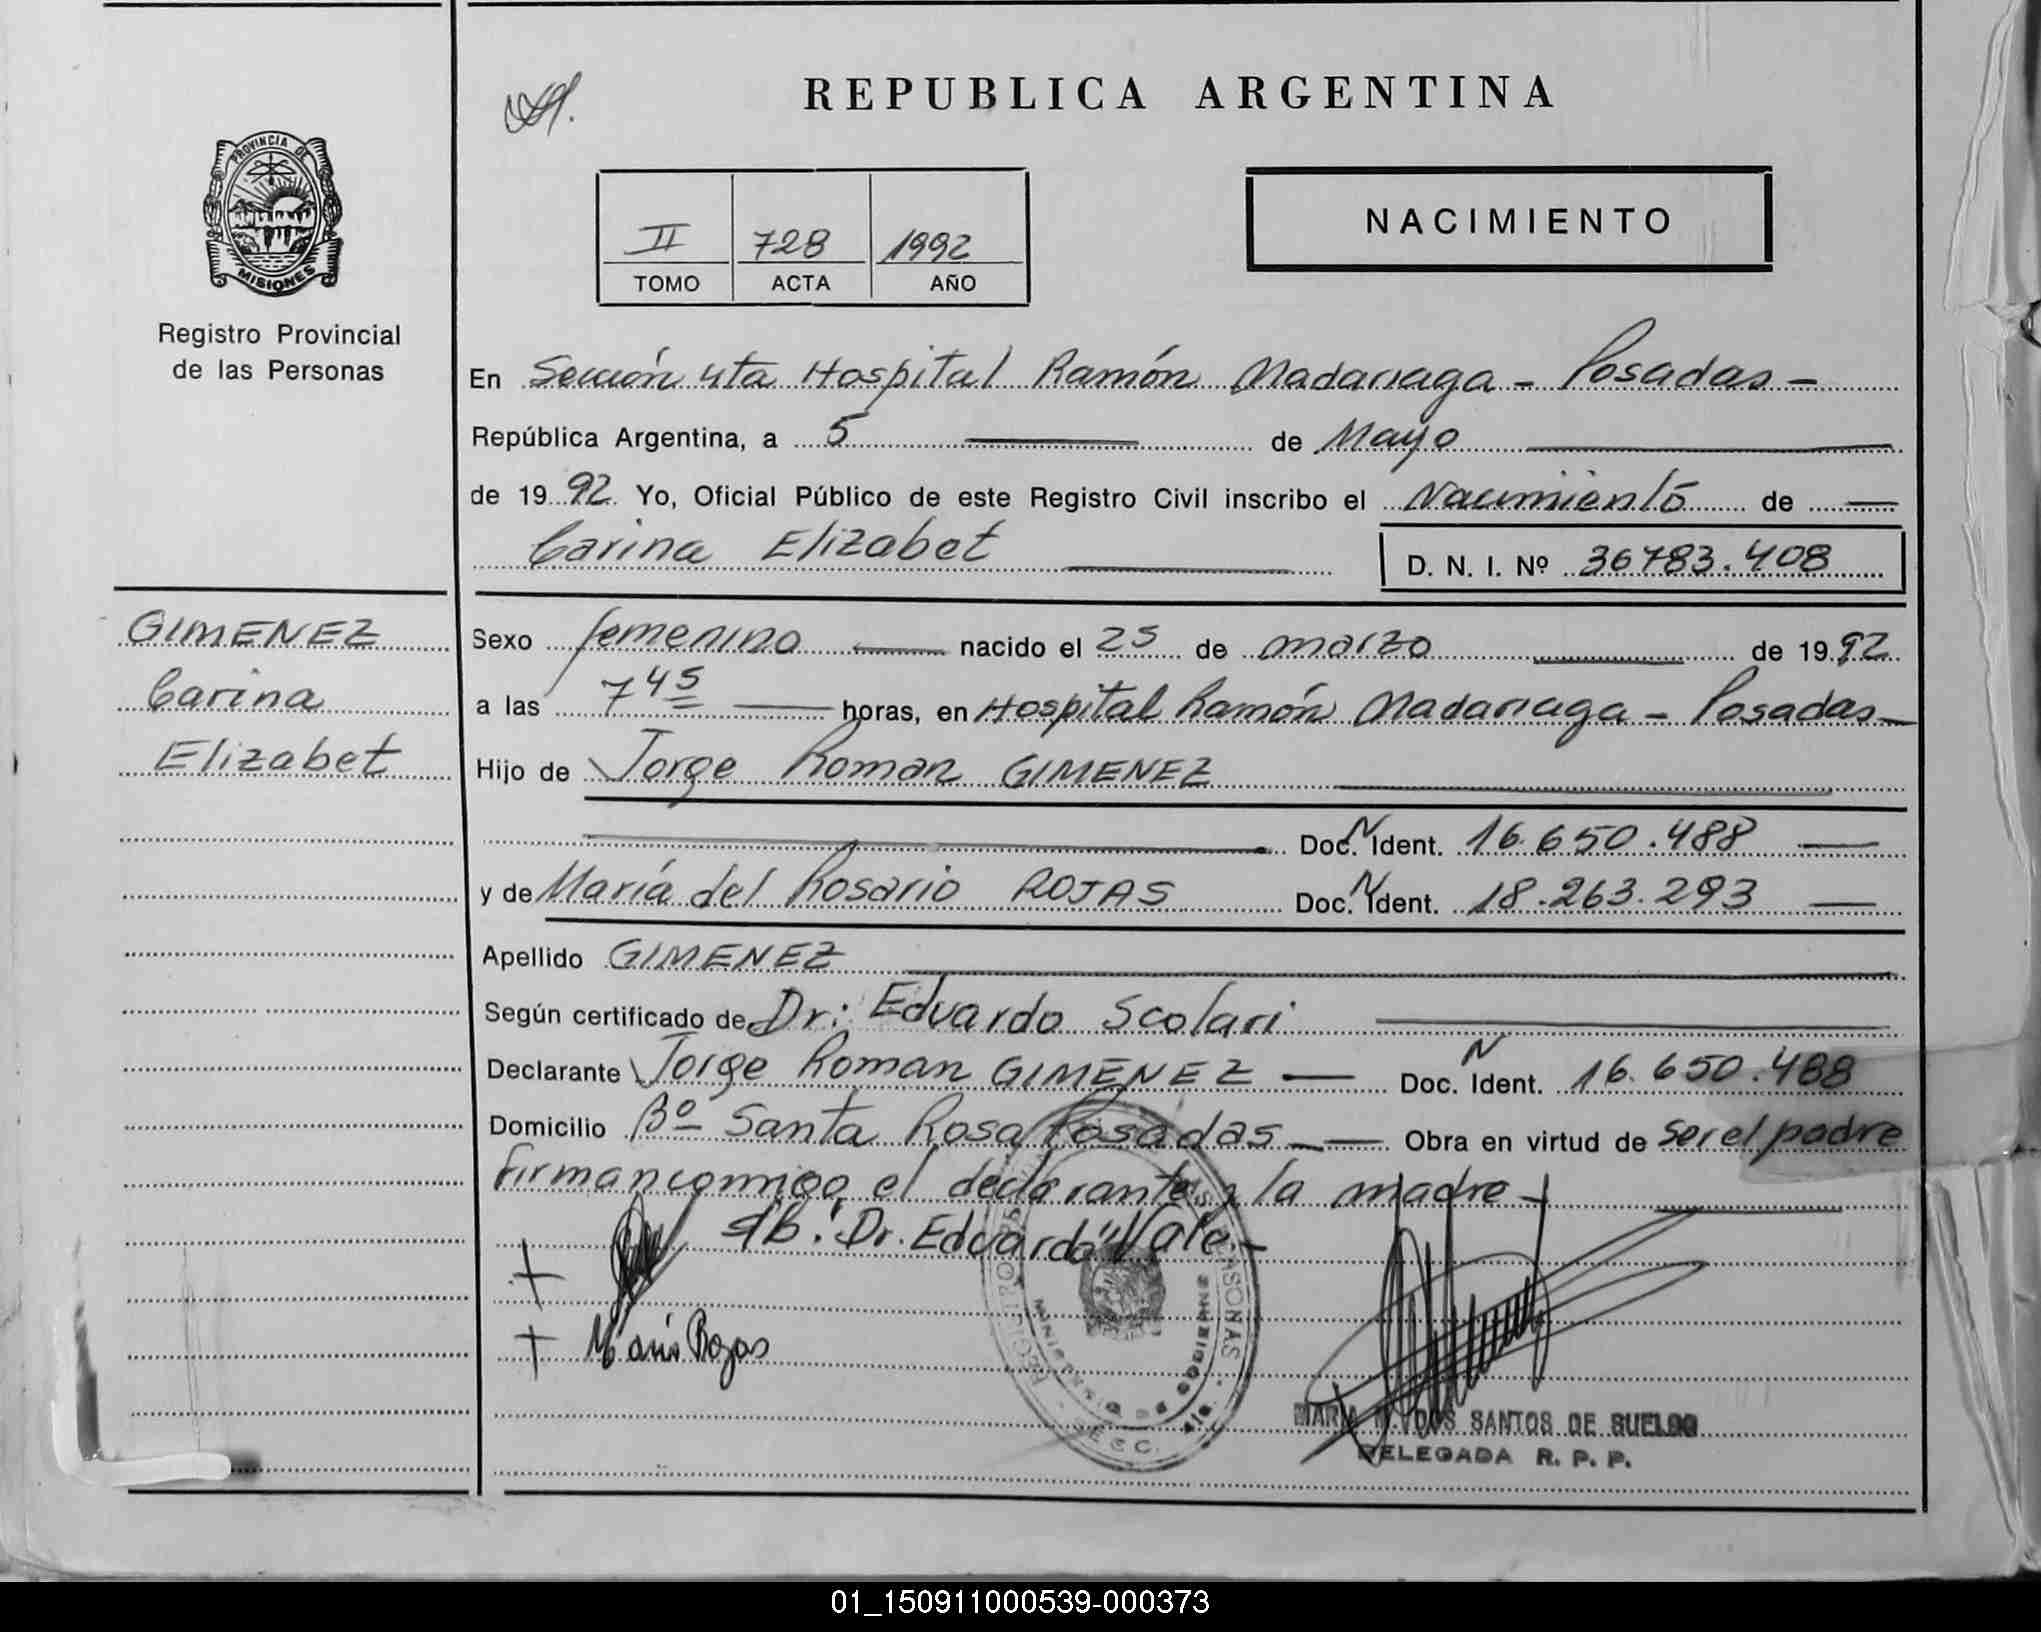 REPUBLICA ARGENTINA
PROVINCIA DE
MISIONES
Registro Provincial
de las Personas
II 728 1992
TOMO ACTA AÑO
NACIMIENTO
En Sección 4ta Hospital Ramón Madariaga - Posadas -
República Argentina, a 5 de Mayo
de 1992 Yo, Oficial Público de este Registro Civil inscribo el Nacimiento de
Carina Elizabet
D. N. I. Nº 36783.408
GIMENEZ
Carina
Elizabet
Sexo femenino nacido el 25 de marzo de 1992
a las 7 45 horas, en Hospital Ramón Madariaga - Posadas -
Hijo de Jorge Roman GIMENEZ
Doc. N Ident. 16.650.488
y de María del Rosario ROJAS Doc. N Ident. 18.263.293
Apellido GIMENEZ
Según certificado de Dr: Eduardo Scolari
Declarante Jorge Roman GIMENEZ Doc. N Ident. 16.650.488
Domicilio Bº Santa Rosa Posadas Obra en virtud de ser el padre
firman conmigo el declarante y la madre -
Dr. Eduardo "Vale -
Maria Rojas
MINISTERIO DE GOBIERNO
MARIA DOS SANTOS DE SUELDO
DELEGADA R. P. P.
01_150911000539-000373